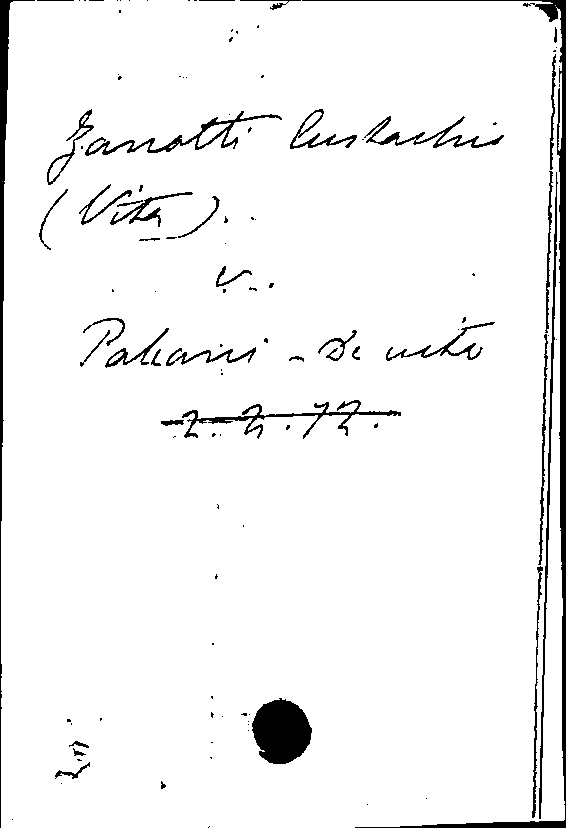 Zanotti Eustachio
(Vita).
v.
Palcani - De vita
2. 2. 72.